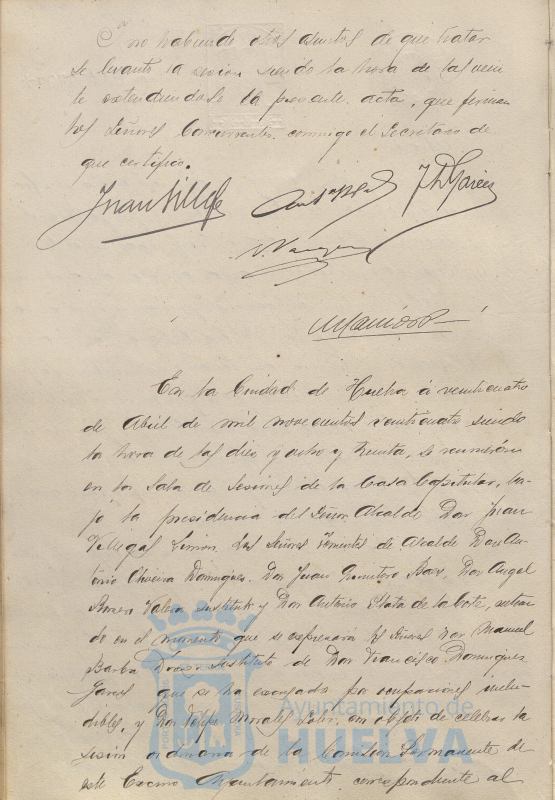 Y no habiendo otros asuntos de que tratar
se levantó la sesion siendo la hora de las vein
te extendiendose la presente acta, que firman
los Señores Concurrentes conmigo el Secretario de
que certifico.
Juan Villegas
En la Ciudad de Huelva á veinticuatro
de Abril de mil novecientos veinticuatro siendo
la hora de las diez y ocho y treinta, se reunieron
en la Sala de Sesiones de la Casa Capitular, ba-
jo la presidencia del Señor Alcalde Don Juan
Villegas Simon, los Señores Tenientes de Alcalde Don An-
tonio Oliveira Dominguez, Don Juan Don Angel
Valera sustituto y Don Antonio de la Corte, entran
do en el momento que se expresará los Señores Don Manuel
Barba sustituto de Don Francisco Dominguez
Garces que se ha excusado por ocupaciones inelu-
dibles, y Don Felipe Morales con objeto de celebrar la
sesión ordinaria de la Comision Permanente de
este Excmo Ayuntamiento correspondiente al
Ayuntamiento de
HUELVA